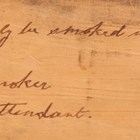 be smoked
smoker
attendant.